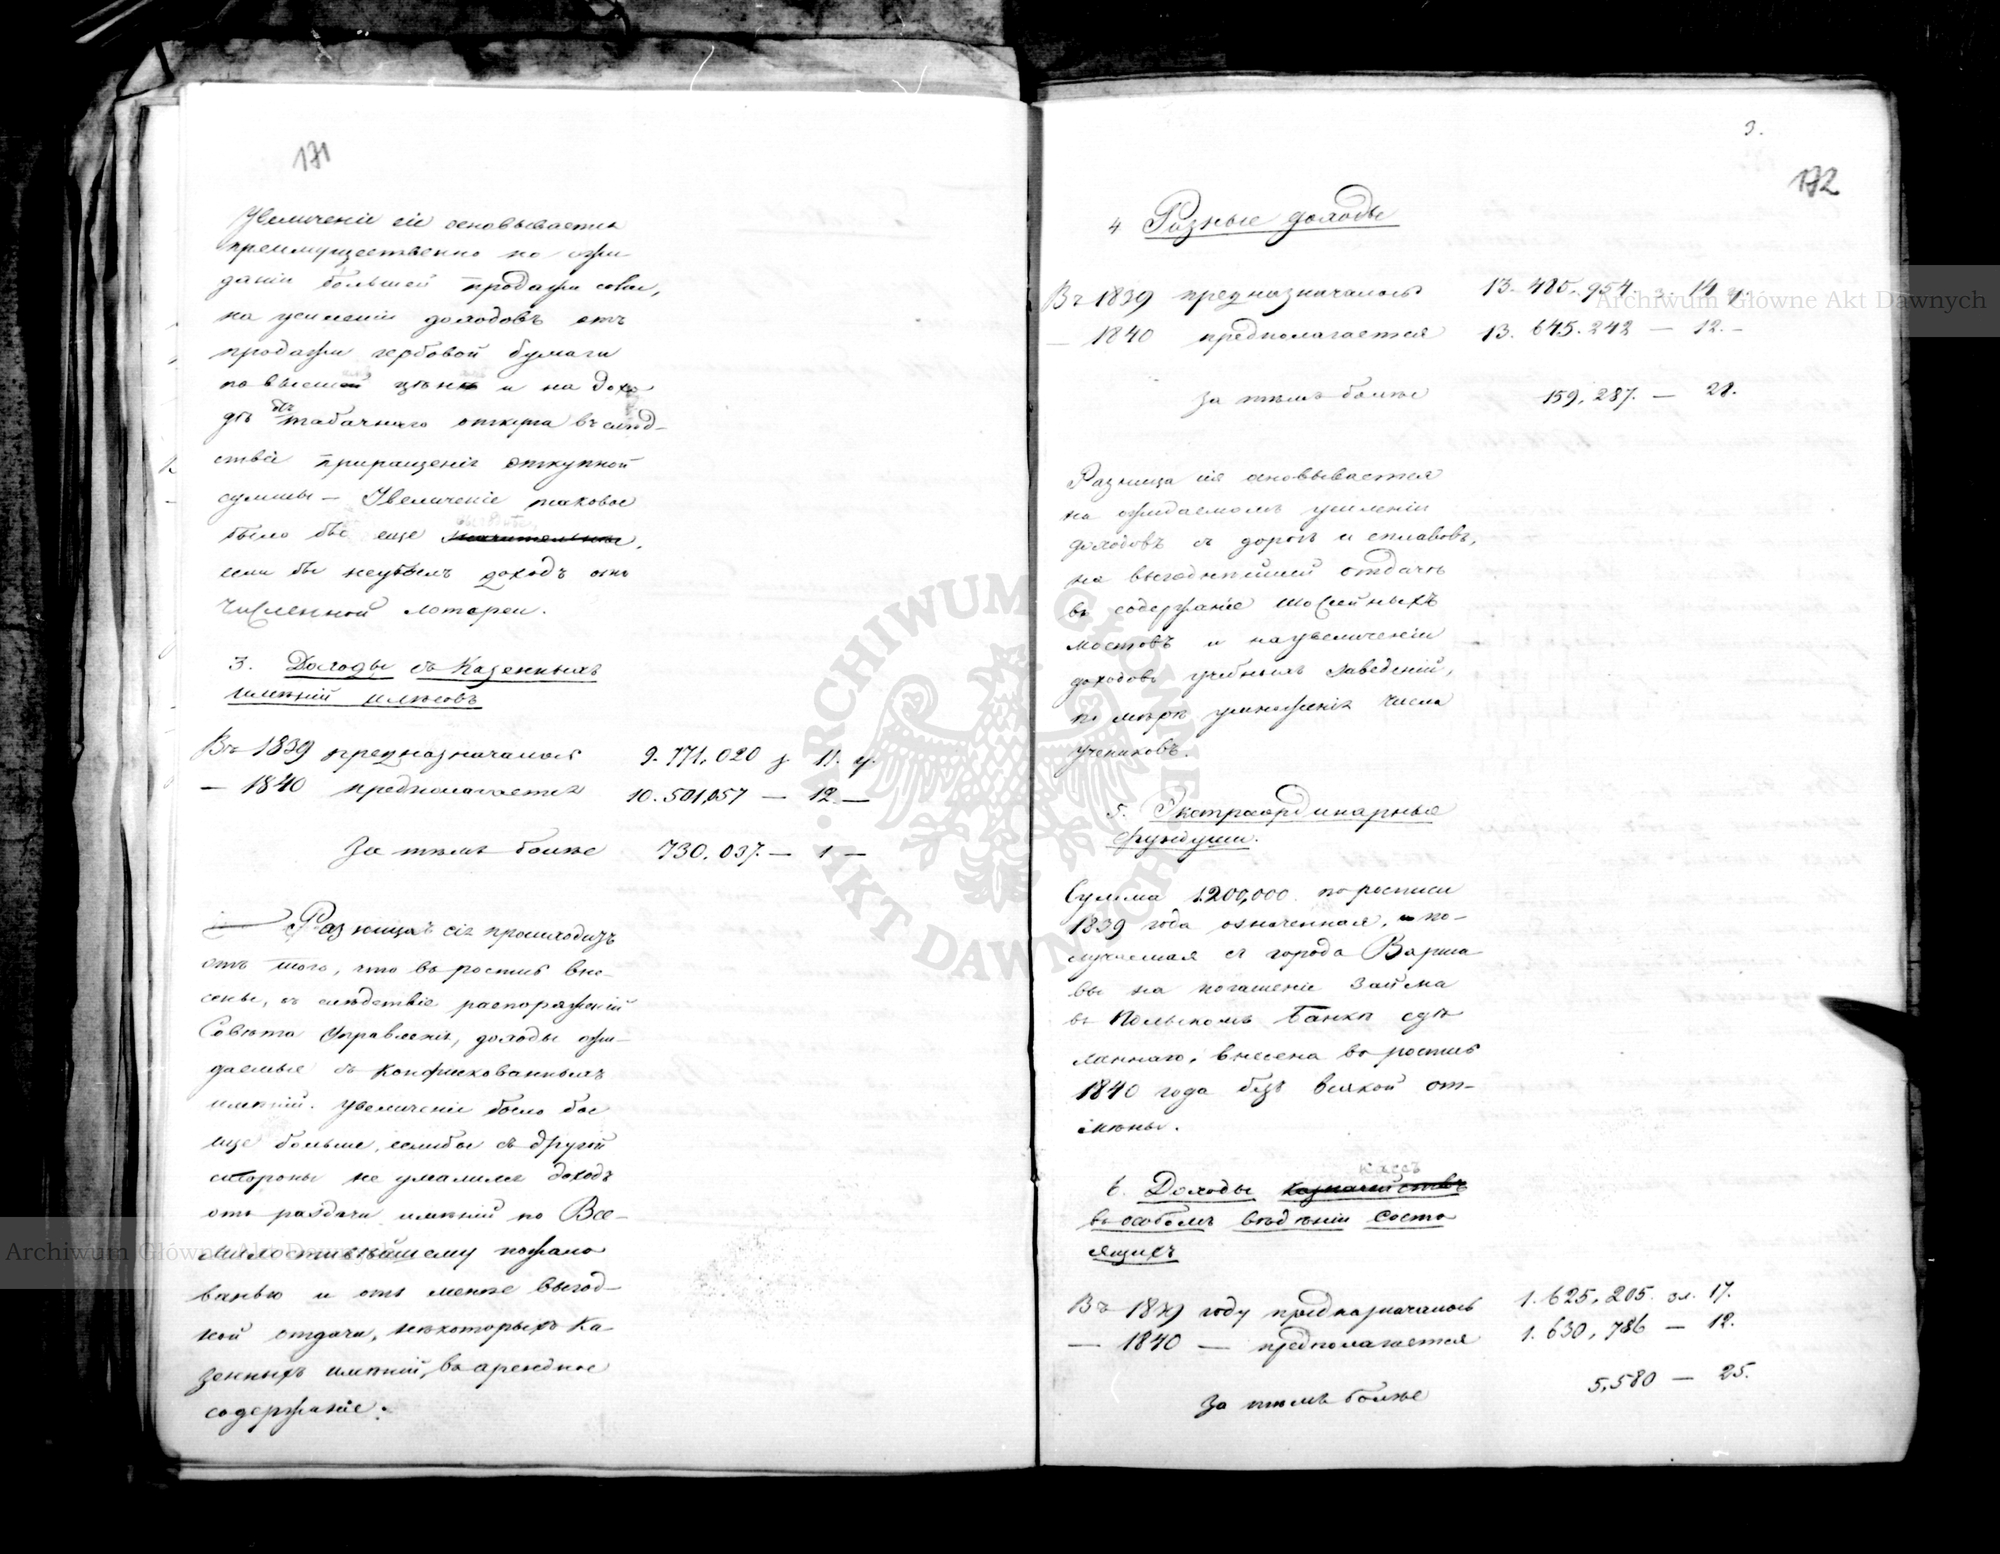 171
Увеличеніе сіе основывается
преимущественно на ожи-
даніи большей продажи соли,
на усиленіи доходовъ отъ
продажи гербовой бумаги
по высшей цѣнѣ и на дохо
дѣ отъ табачнаго откупа въ слѣд-
ствіе приращенія откупной
суммы — Увеличеніе таковое
было бы еще значительнѣе,
если бы не убылъ доходъ отъ
численной лотереи.
3. Доходы съ Казенныхъ
имѣній и лѣсовъ
Въ 1839 предназначалось 9.771,020 з. 11. г.
— 1840 предполагается 10.501,057 — 12 —
За тѣмъ болѣе 730,037. — 1 —
Разница сія происходитъ
отъ того, что въ роспись вне-
сены, въ слѣдствіе распоряженій
Совѣта Управленія, доходы ожи-
даемые съ Конфискованныхъ
имѣній. Увеличеніе было бы
еще больше, еслибы съ другой
стороны не умалился доходъ
отъ раздачи имѣній по Все-
милостивѣйшему пожало
ванью и отъ менѣе выгод-
ной отдачи, нѣкоторыхъ Ка-
зенныхъ имѣній, въ арендное
содержаніе.
3.
172
4 Разные доходы
Въ 1839 предназначалось 13.485,954. з. 14 г.
— 1840 предполагается 13.645.242 — 12. —
За тѣмъ болѣе 159,287. — 28.
Разница сія основывается
на ожидаемомъ усиленіи
доходовъ съ дорогъ и сплавовъ,
на выгоднѣйшей отдачѣ
въ содержаніе шоссейныхъ
мостовъ и на увеличеніи
доходовъ учебныхъ заведеній,
по мѣрѣ умноженія числа
учениковъ.
5. Экстраординарные
фундуши.
Сумма 1.200,000 по росписи
1839 года означенная, по-
лучаемая съ города Варша
вы на погашеніе займа
въ Польскомъ Банкѣ сдѣ
ланнаго, внесена въ роспись
1840 года безъ всякой от-
мѣны.
кассъ
6. Доходы казначействъ
въ особомъ вѣдѣніи состо
ящихъ
Въ 1839 году предназначалось 1.625,205. зл. 17.
— 1840 — предполагается 1.630,786 — 12.
За тѣмъ болѣе 5,580 — 25.
Archiwum Główne Akt Dawnych
Archiwum Główne Akt Dawnych
ARCHIWUM GŁÓWNE AKT DAWNYCH